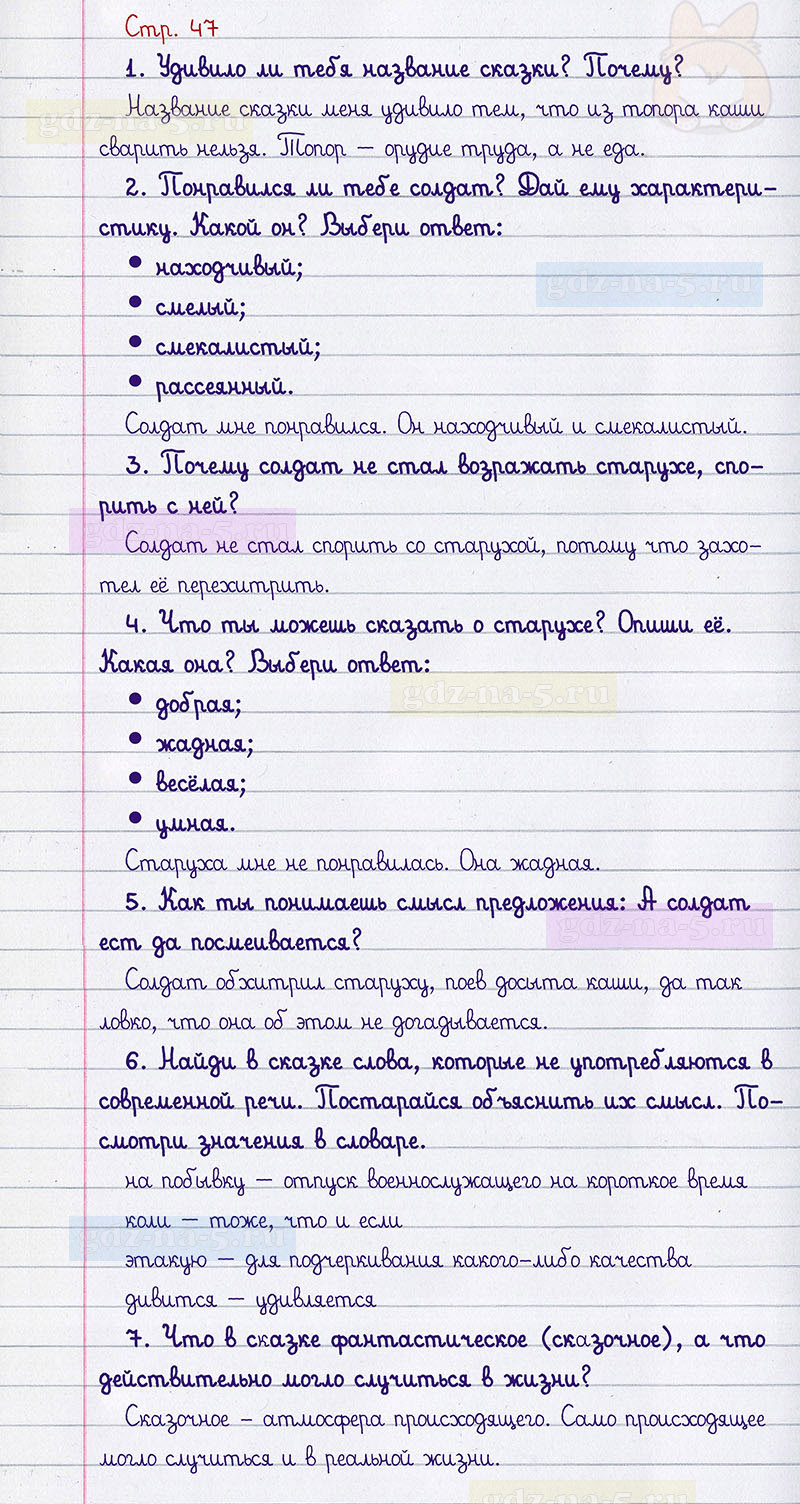 Стр. 47
1. Удивило ли тебя название сказки? Почему?
Название сказки меня удивило тем, что из топора каши
gdz-na-5.ru
сварить нельзя. Топор — орудие труда, а не еда.
2. Понравился ли тебе солдат? Дай ему характери-
стику. Какой он? Выбери ответ:
• находчивый;
gdz-na-5.ru
• смелый;
• смекалистый;
• рассеянный.
Солдат мне понравился. Он находчивый и смекалистый.
3. Почему солдат не стал возражать старухе, спо-
рить с ней?
gdz-na-5.ru
Солдат не стал спорить со старухой, потому что захо-
тел её перехитрить.
4. Что ты можешь сказать о старухе? Опиши её.
Какая она? Выбери ответ:
gdz-na-5.ru
• добрая;
• жадная;
• весёлая;
• умная.
Старуха мне не понравилась. Она жадная.
5. Как ты понимаешь смысл предложения: А солдат
gdz-na-5.ru
ест да посмеивается?
Солдат обхитрил старуху, поев досыта каши, да так
ловко, что она об этом не догадывается.
6. Найди в сказке слова, которые не употребляются в
современной речи. Постарайся объяснить их смысл. По-
смотри значения в словаре.
на побывку — отпуск военнослужащего на короткое время
коли — тоже, что и если
gdz-na-5.ru
этакую — для подчеркивания какого-либо качества
дивится — удивляется
7. Что в сказке фантастическое (сказочное), а что
действительно могло случиться в жизни?
Сказочное - атмосфера происходящего. Само происходящее
могло случиться и в реальной жизни.
gdz-na-5.ru